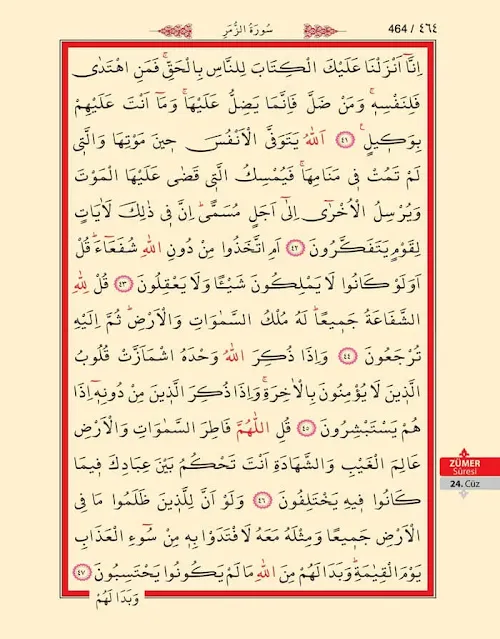 سُورَةُ الزُّمَرِ
464 / ٤٦٤
اِنَّٓا اَنْزَلْنَا عَلَيْكَ الْكِتَابَ لِلنَّاسِ بِالْحَقِّۚ فَمَنِ اهْتَدٰى
فَلِنَفْسِه۪ۚ وَمَنْ ضَلَّ فَاِنَّمَا يَضِلُّ عَلَيْهَاۚ وَمَٓا اَنْتَ عَلَيْهِمْ
بِوَك۪يلٍ۟ ٤١ اَللّٰهُ يَتَوَفَّى الْاَنْفُسَ ح۪ينَ مَوْتِهَا وَالَّت۪ي
لَمْ تَمُتْ ف۪ي مَنَامِهَاۚ فَيُمْسِكُ الَّت۪ي قَضٰى عَلَيْهَا الْمَوْتَ
وَيُرْسِلُ الْاُخْرٰٓى اِلٰٓى اَجَلٍ مُسَمًّىۜ اِنَّ ف۪ي ذٰلِكَ لَاٰيَاتٍ
لِقَوْمٍ يَتَفَكَّرُونَ ٤٢ اَمِ اتَّخَذُوا مِنْ دُونِ اللّٰهِ شُفَعَٓاءَۜ قُلْ
اَوَلَوْ كَانُوا لَا يَمْلِكُونَ شَيْـًٔا وَلَا يَعْقِلُونَ ٤٣ قُلْ لِلّٰهِ
الشَّفَاعَةُ جَم۪يعًاۜ لَهُ مُلْكُ السَّمٰوَاتِ وَالْاَرْضِۜ ثُمَّ اِلَيْهِ
تُرْجَعُونَ ٤٤ وَاِذَا ذُكِرَ اللّٰهُ وَحْدَهُ اشْمَاَزَّتْ قُلُوبُ
الَّذ۪ينَ لَا يُؤْمِنُونَ بِالْاٰخِرَةِۚ وَاِذَا ذُكِرَ الَّذ۪ينَ مِنْ دُونِه۪ٓ اِذَا
هُمْ يَسْتَبْشِرُونَ ٤٥ قُلِ اللّٰهُمَّ فَاطِرَ السَّمٰوَاتِ وَالْاَرْضِ
عَالِمَ الْغَيْبِ وَالشَّهَادَةِ اَنْتَ تَحْكُمُ بَيْنَ عِبَادِكَ ف۪يمَا
كَانُوا ف۪يهِ يَخْتَلِفُونَ ٤٦ وَلَوْ اَنَّ لِلَّذ۪ينَ ظَلَمُوا مَا فِي
الْاَرْضِ جَم۪يعًا وَمِثْلَهُ مَعَهُ لَافْتَدَوْا بِه۪ مِنْ سُٓوءِ الْعَذَابِ
يَوْمَ الْقِيٰمَةِۜ وَبَدَا لَهُمْ مِنَ اللّٰهِ مَا لَمْ يَكُونُوا يَحْتَسِبُونَ ٤٧
وَبَدَا لَهُمْ
ZÜMER
Sûresi
24. Cüz